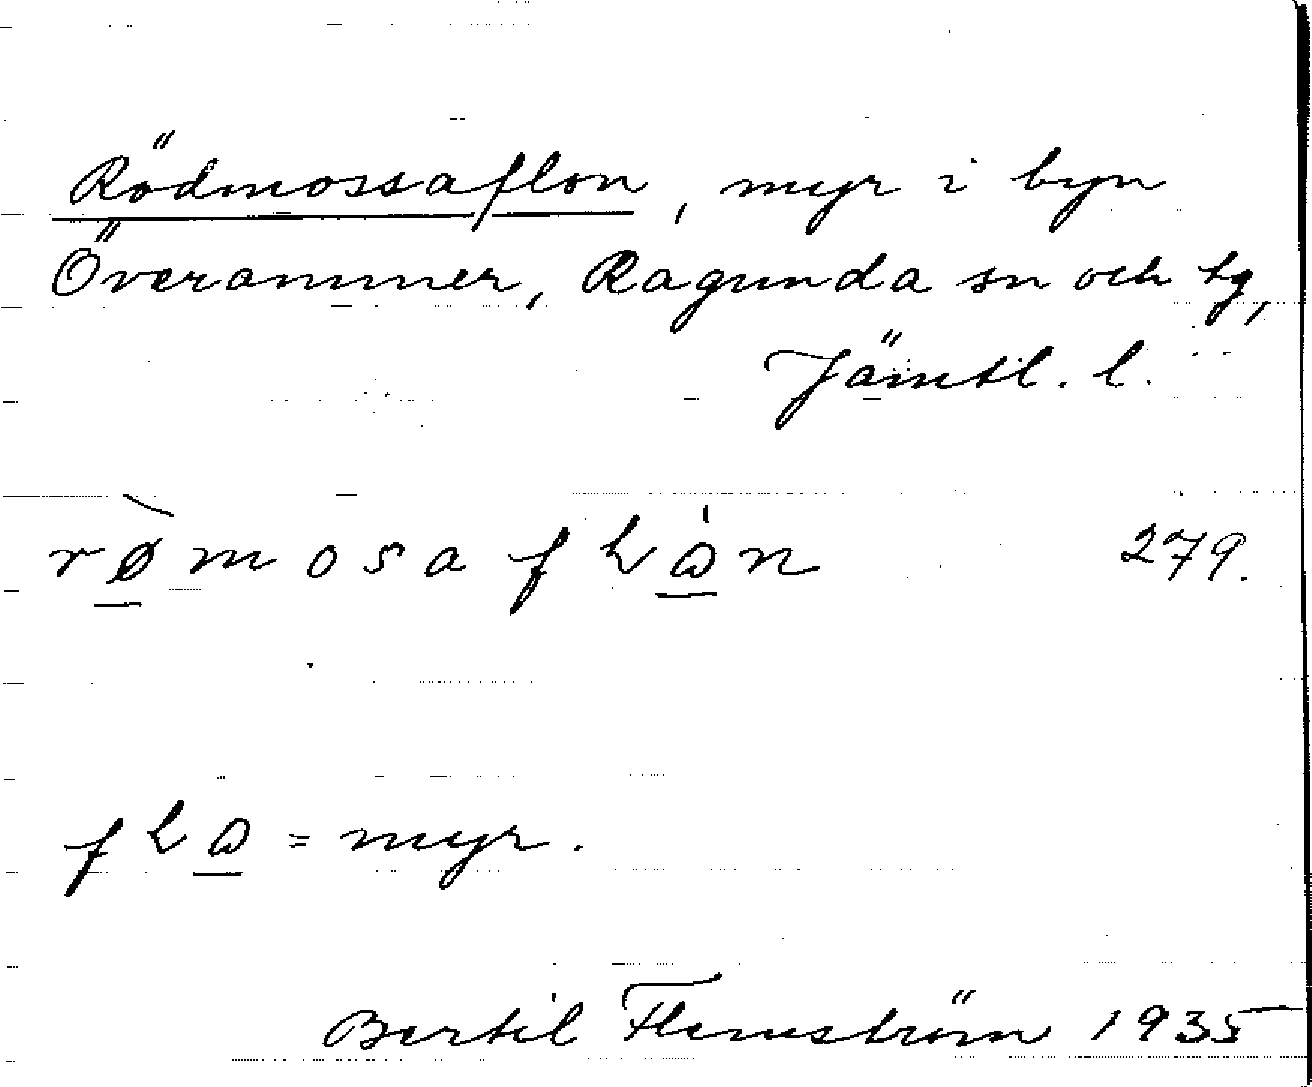 Rödmossaflon, myr i byn
Överammer, Ragunda sn och tg,
Jämtl. l.
rø̀mosaflω̍n 279.
flω = myr.
Bertil Flemström 1935